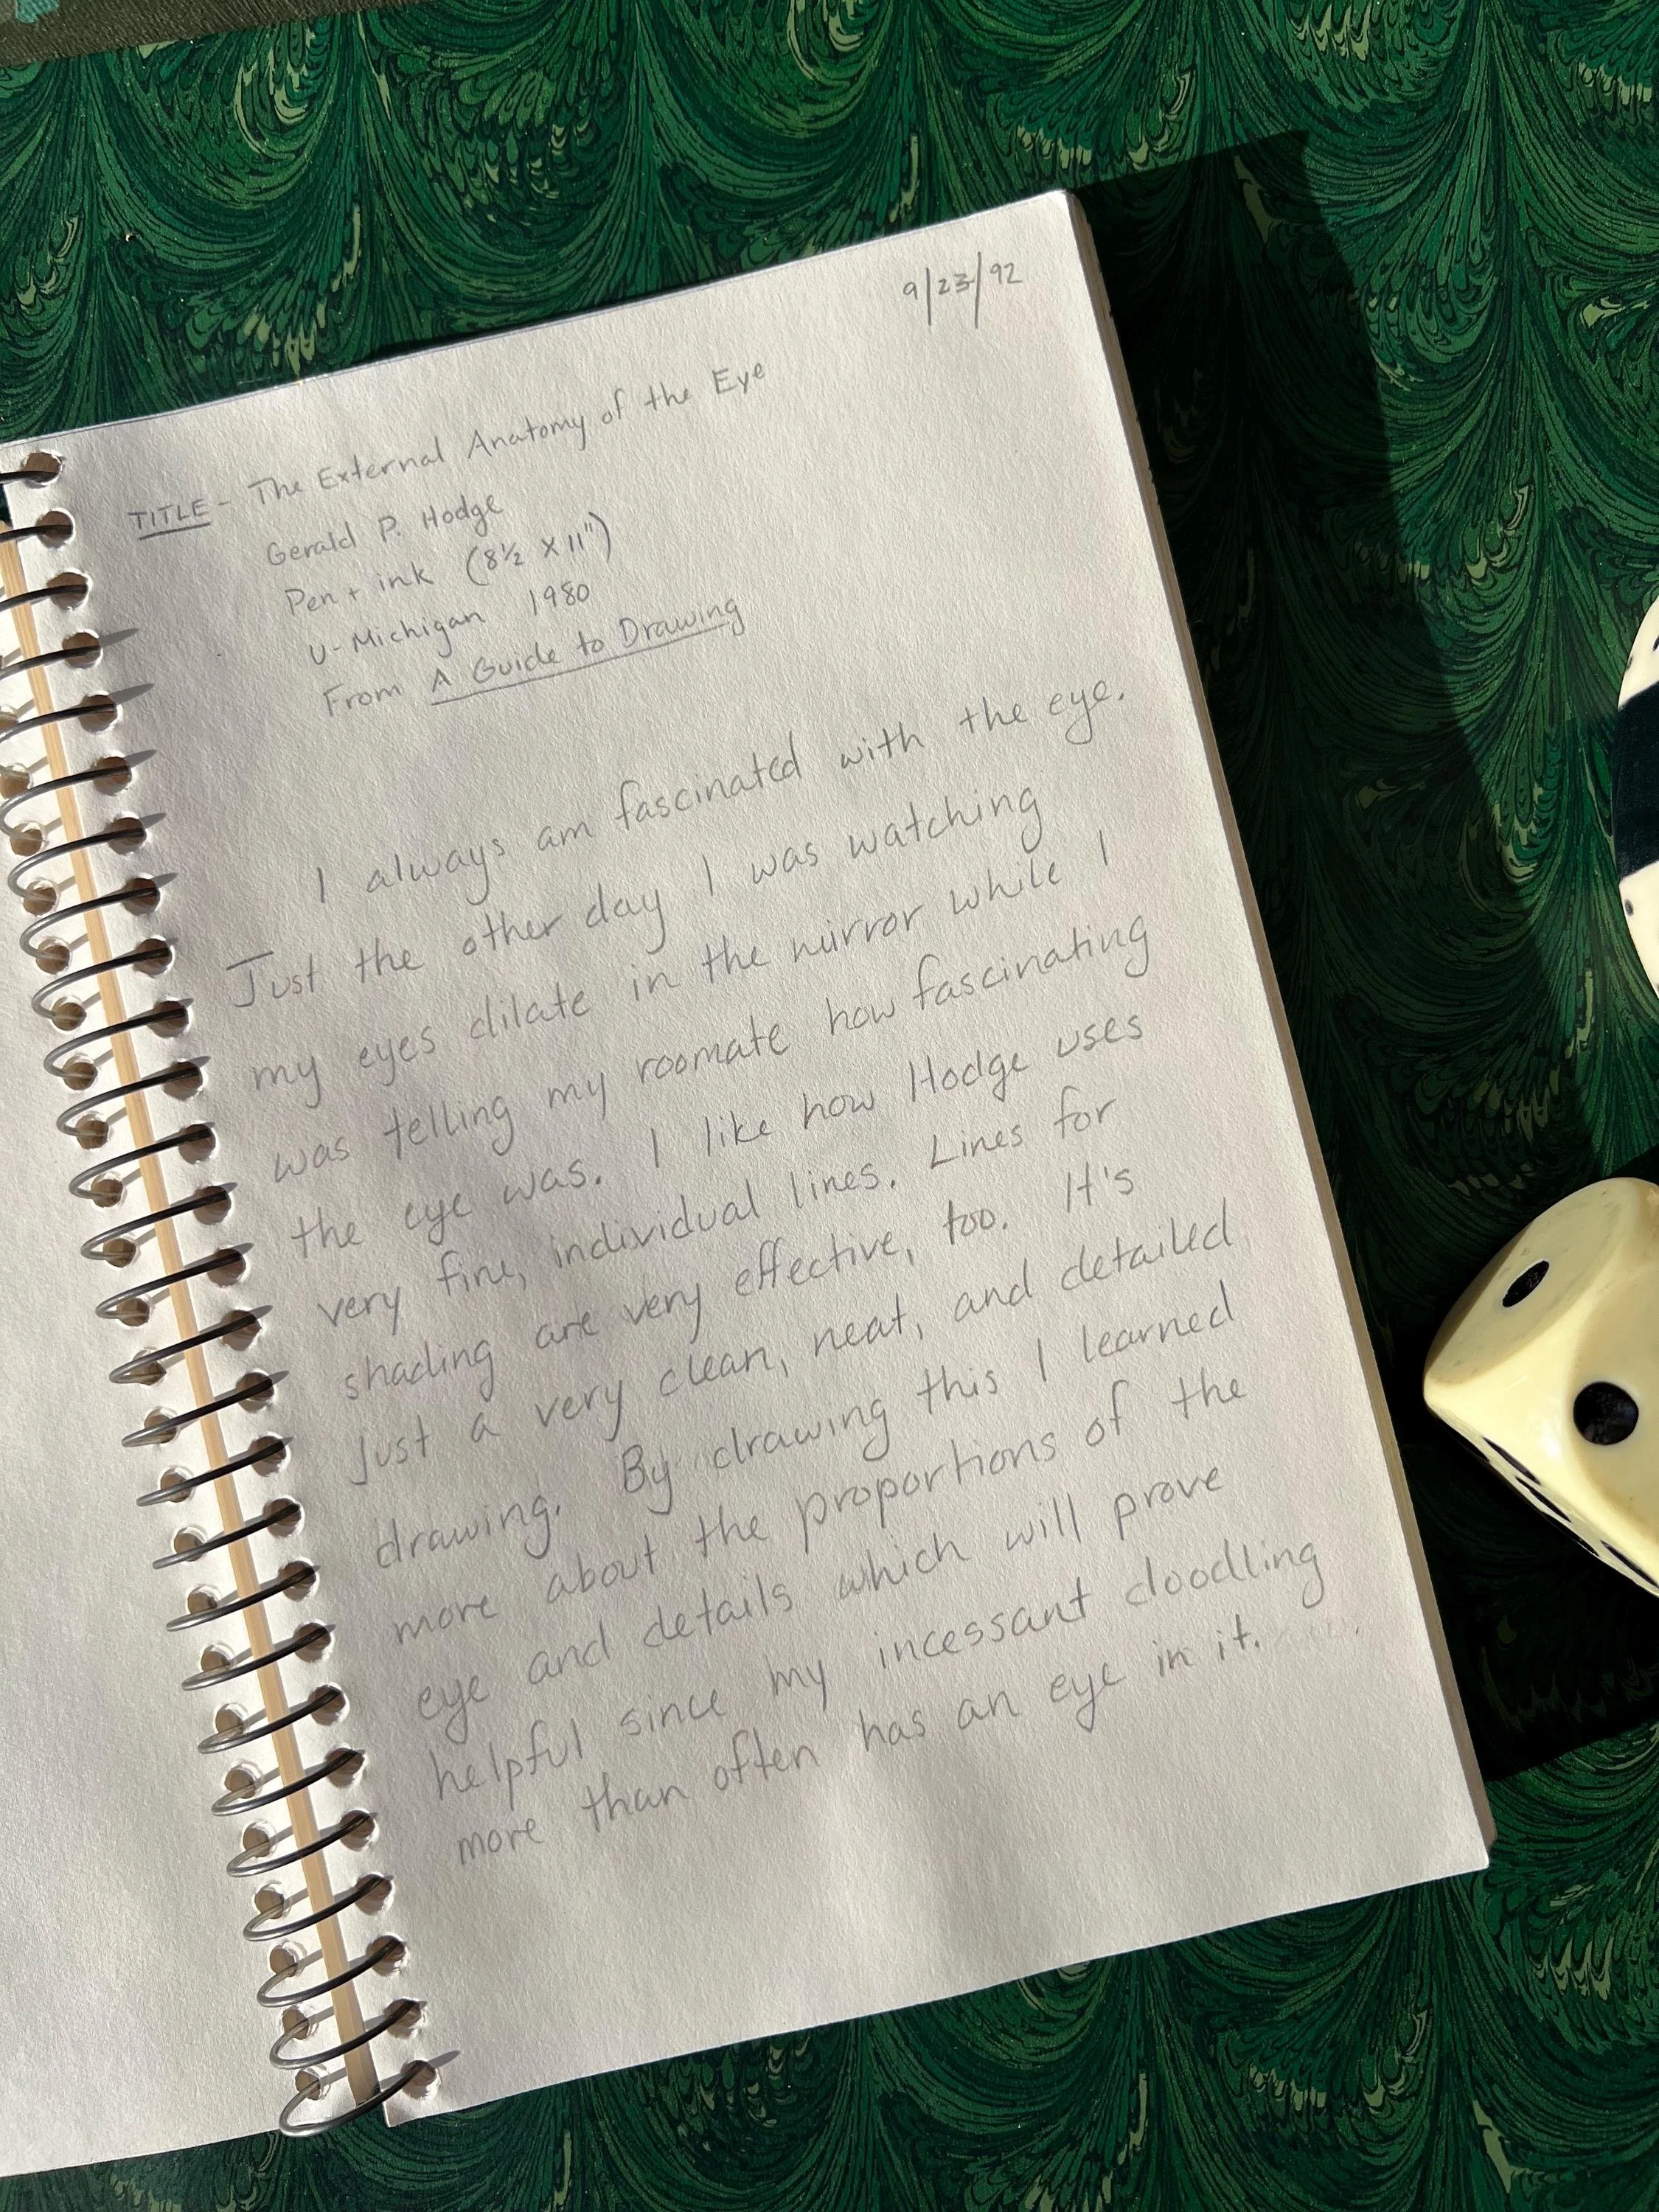 9/23/92
TITLE - The External Anatomy of the Eye
Gerald P. Hodge
Pen + ink (8½ X 11")
U-Michigan 1980
From A Guide to Drawing
I always am fascinated with the eye.
Just the other day I was watching
my eyes dilate in the mirror while I
was telling my roomate how fascinating
the eye was. I like how Hodge uses
very fine, individual lines. Lines for
shading are very effective, too. It's
just a very clean, neat, and detailed
drawing. By drawing this I learned
more about the proportions of the
eye and details which will prove
helpful since my incessant doodling
more than often has an eye in it.